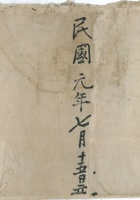 民國元年七月十五日立